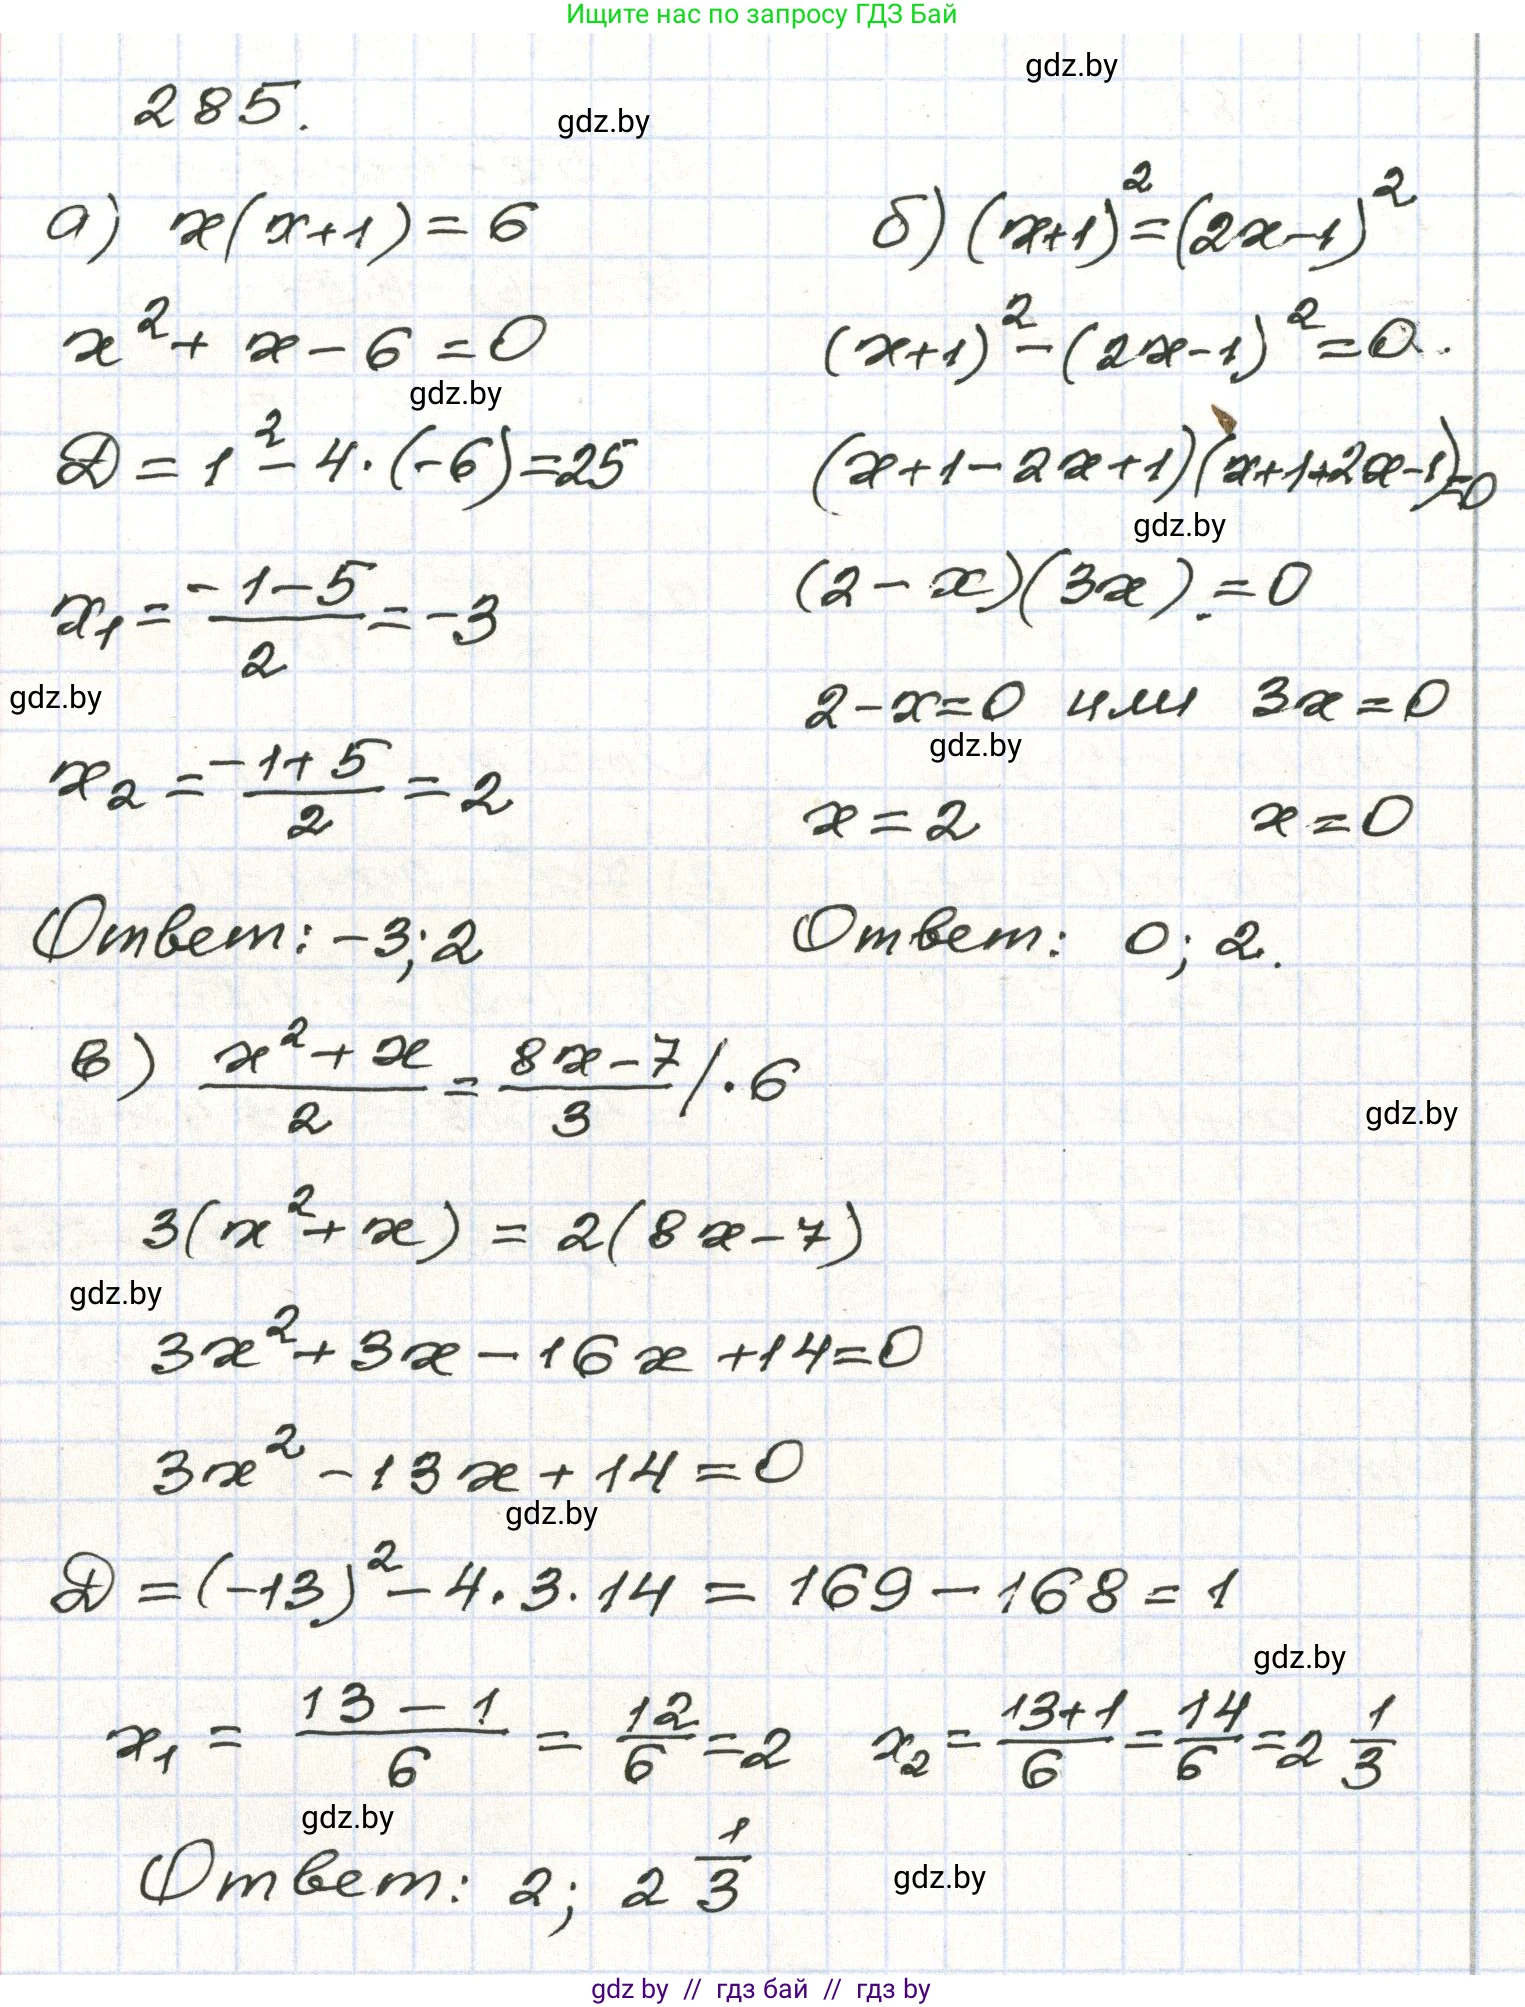 Ищите нас по запросу ГДЗ Бай
gdz.by
285.
gdz.by
а) x(x+1)=6
x²+x-6=0
gdz.by
D=1²-4·(-6)=25
x₁=(-1-5)/2=-3
gdz.by
x₂=(-1+5)/2=2
Ответ: -3; 2
б) (x+1)²=(2x-1)²
(x+1)²-(2x-1)²=0.
(x+1-2x+1)(x+1+2x-1)=0
gdz.by
(2-x)(3x).=0
2-x=0 или 3x=0
gdz.by
x=2 x=0
Ответ: 0; 2.
в) (x²+x)/2=(8x-7)/3 /·6
gdz.by
3(x²+x)=2(8x-7)
gdz.by
3x²+3x-16x+14=0
3x²-13x+14=0
gdz.by
D=(-13)²-4·3·14=169-168=1
gdz.by
x₁=(13-1)/6=12/6=2 x₂=(13+1)/6=14/6=2 1/3
gdz.by
Ответ: 2; 2 1/3
gdz.by
gdz by // гдз бай // гдз by